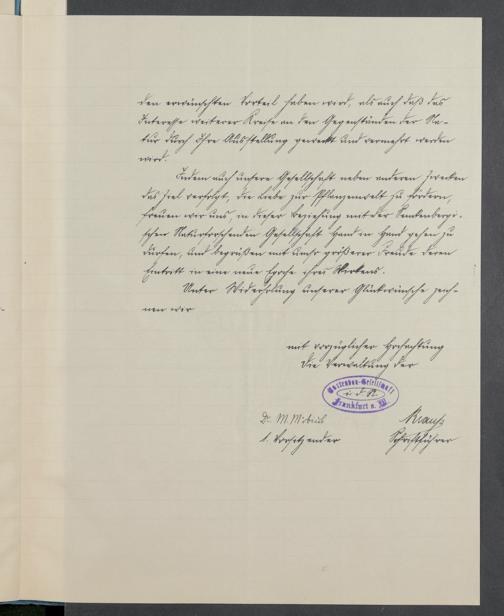 den erwünschten Vorteil haben wird, als auch daß das
Interesse weiterer Kreise an den Gegenständen der Na-
tur durch Ihre Ausstellung geweckt und vermehrt werden
wird.
Indem auch unsere Gesellschaft neben anderen Zwecken
das Ziel verfolgt, die Liebe zur Pflanzenwelt zu fördern,
freuen wir uns, in dieser Beziehung mit der Senkenbergi-
schen Naturforschenden Gesellschaft Hand in Hand gehen zu
dürfen, und begrüßen mit umso größerer Freude deren
Eintritt in eine neue Epoche ihres Wirkens.
Unter Wiederholung unserer Glückwünsche zeich-
nen wir
mit vorzüglicher Hochachtung
die Verwaltung der
Gartenbau-Gesellschaft
Frankfurt a. M.
Dr. M.
Krauss
1. Vorsitzender
Schriftführer